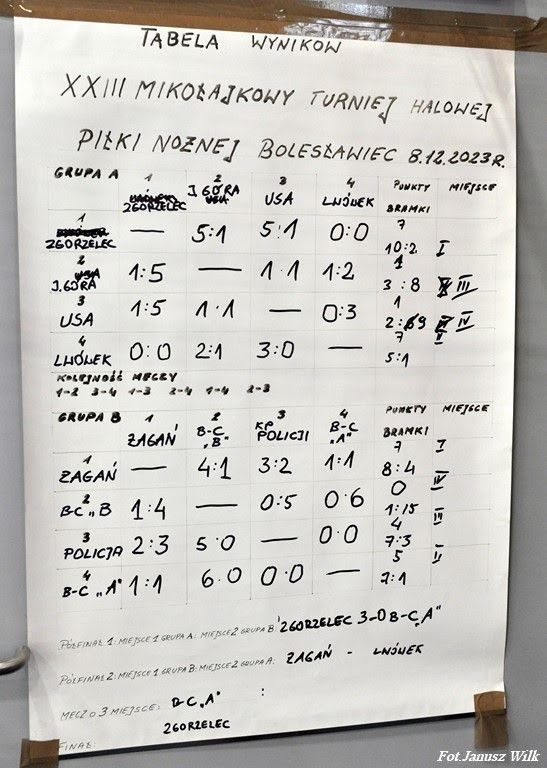 TĄBELA WYNIKOW
XXIII MIKOŁAJKOWY TURNIEJ HALOWEJ
PIŁKI NOŻNEJ BOLESŁAWIEC 8.12.2023 R.
GRUPA A 1 ZGORZELEC 2 J.GÓRA 3 USA 4 LWÓWEK PUNKTY BRAMKI MIEJSCE
1 ZGORZELEC — 5:1 5:1 0:0 7 10:2 I
2 J.GÓRA 1:5 — 1 1 1:2 1 3:8 III
3 USA 1:5 1 1 — 0:3 1 2:9 IV
4 LWÓWEK 0:0 2:1 3:0 — 7 5:1 II
KOLEJNOŚĆ MECZY
1-2 3-4 1-3 2-4 1-4 2-3
GRUPA B 1 ŻAGAŃ 2 B-C "B" 3 KP POLICJI 4 B-C "A" PUNKTY BRAMKI MIEJSCE
1 ŻAGAŃ — 4:1 3:2 1:1 7 8:4 I
2 B-C "B 1:4 — 0:5 0 6 0 1:15 IV
3 POLICJA 2:3 5 0 — 0:0 4 7:3 III
4 B-C "A" 1:1 6 0 0 0 — 5 7:1 II
PÓŁFINAŁ 1: MIEJSCE 1 GRUPA A: MIEJSCE 2 GRUPA B: ZGORZELEC 3-0 B-C "A"
PÓŁFINAŁ 2: MIEJSCE 1 GRUPA B: MIEJSCE 2 GRUPA A: ŻAGAŃ - LWÓWEK
MECZ O 3 MIEJSCE: B-C "A" :
FINAŁ: ZGORZELEC
Fot.Janusz Wilk